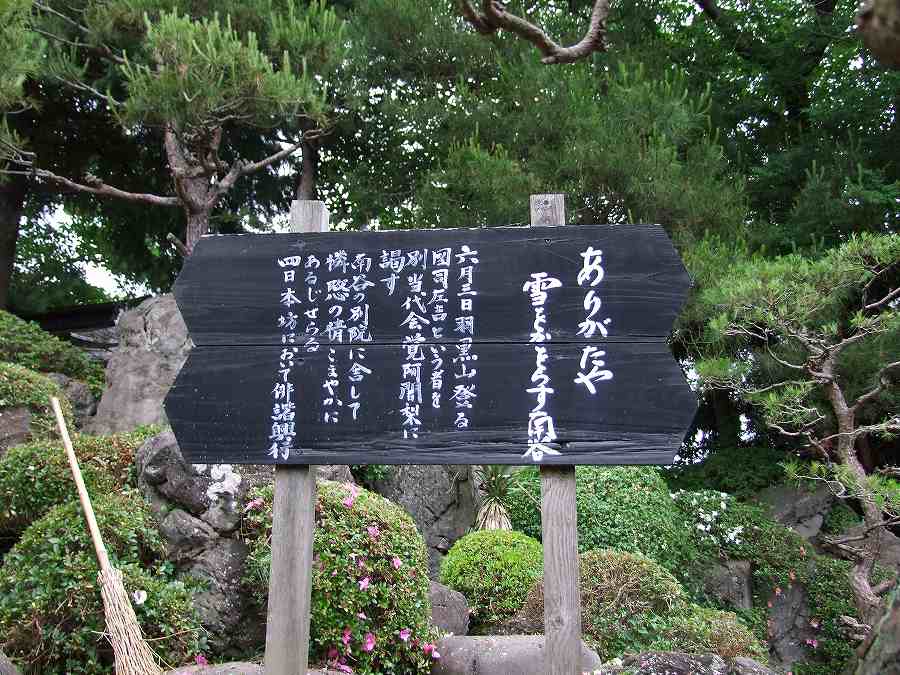 ありがたや
雪をかをらす南谷
六月三日羽黒山登る
図司左吉という者を
別当代会覚阿闍梨に
謁す
南谷の別院に舎して
憐愍の情こまやかに
あるじせらる
四日本坊において俳諧興行